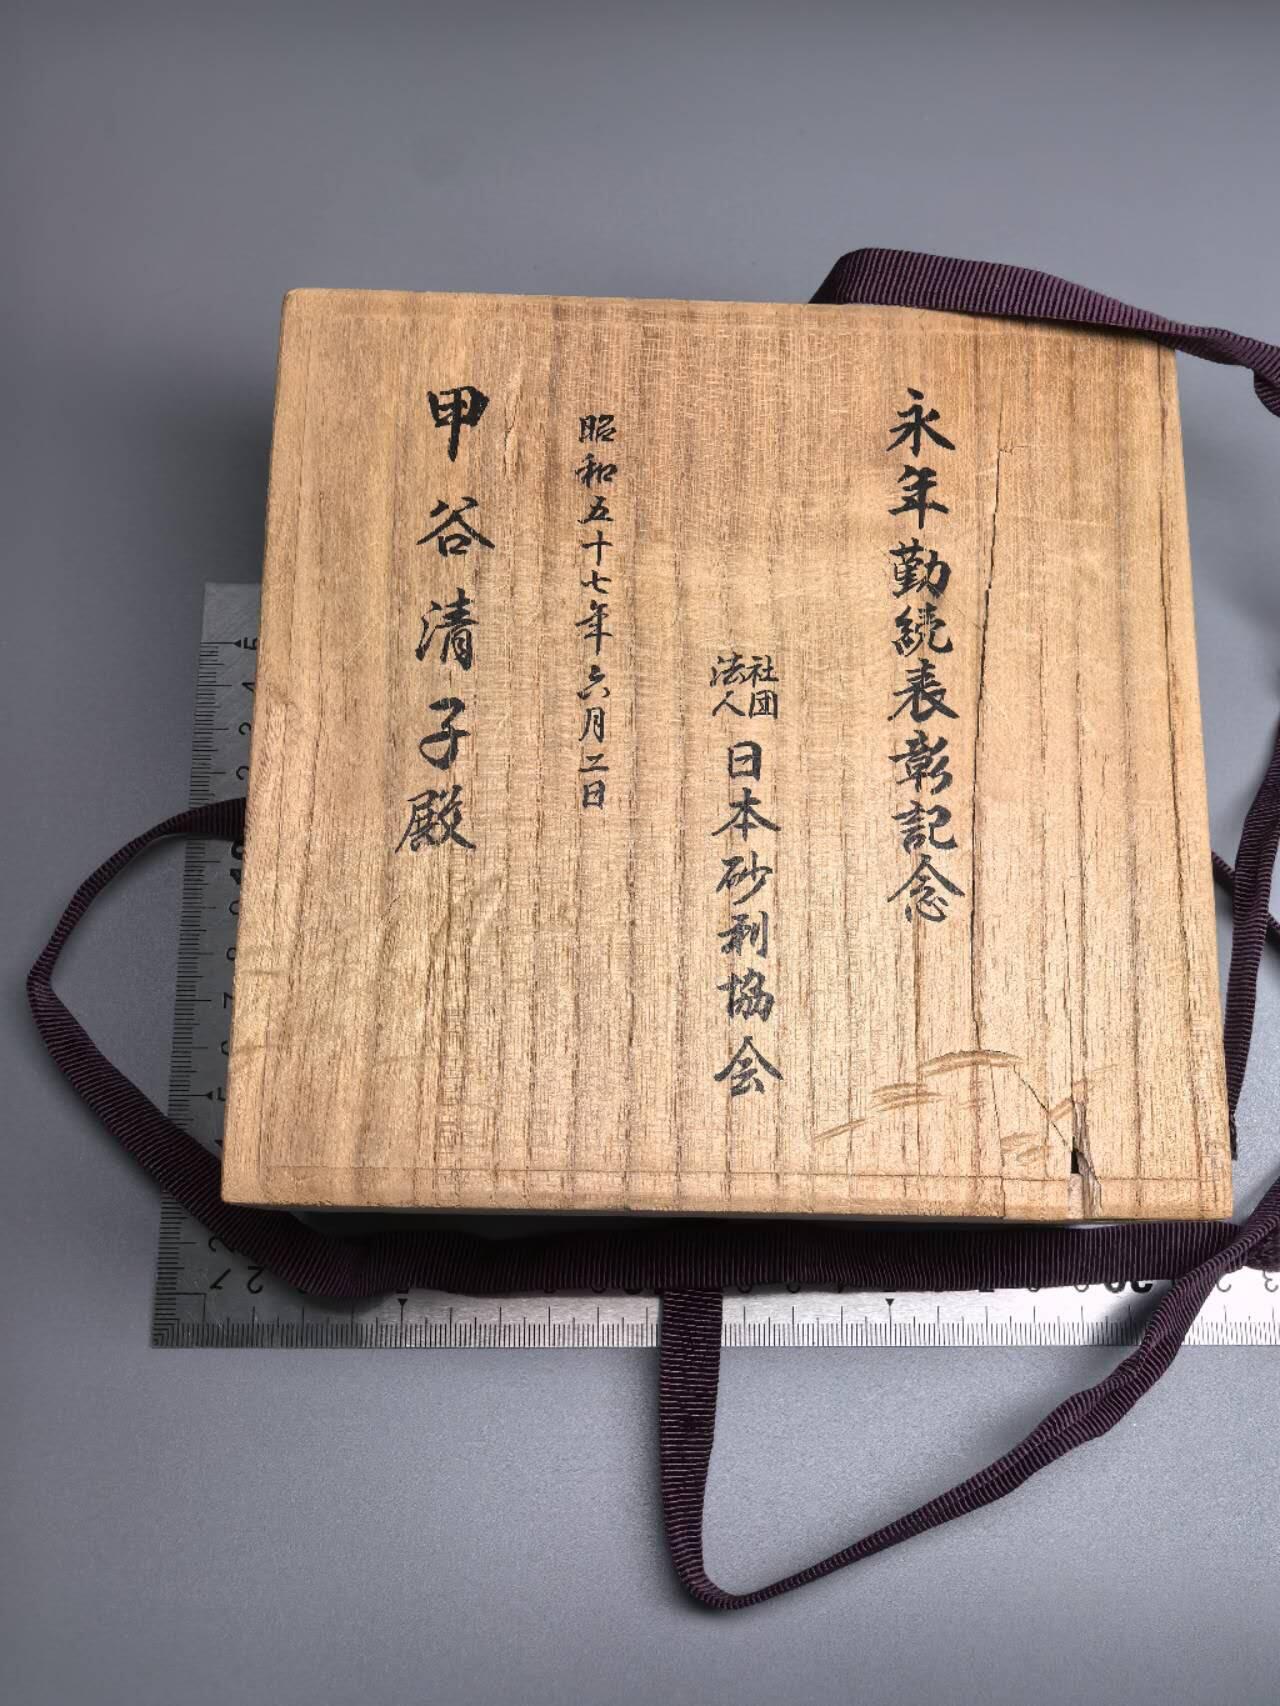 永年勤続表彰記念
社団
法人
日本砂利協会
昭和五十七年六月二日
甲谷清子殿